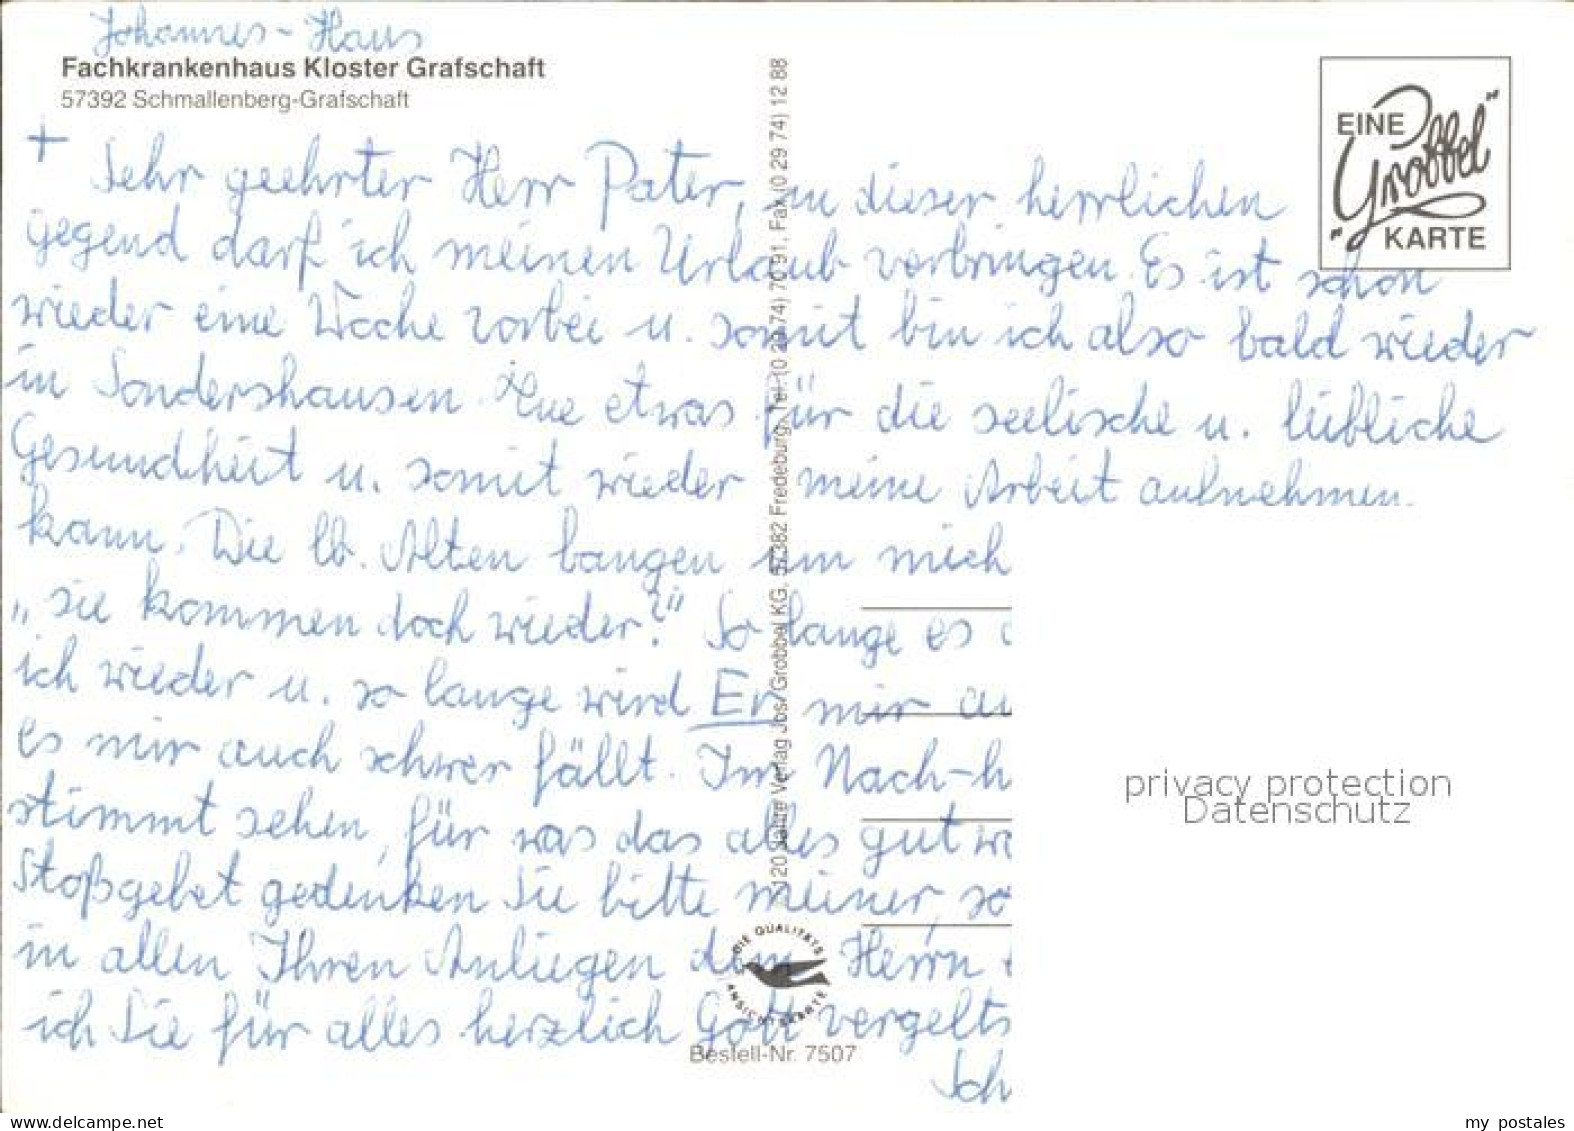 Johannes-Haus
Fachkrankenhaus Kloster Grafschaft
57392 Schmallenberg-Grafschaft
EINE
"Grobbel"
KARTE
+ Sehr geehrter Herr Pater, in dieser herrlichen
gegend darf ich meinen Urlaub verbringen. Es ist schon
wieder eine Woche vorbei u. somit bin ich also bald wieder
in Sondershausen. Tue etwas für die seelische u. leibliche
Gesundheit u. somit wieder meine Arbeit aufnehmen
kann. Die lb. Alten bangen um mich
"sie kommen doch wieder?" So lange es
ich wieder u. so lange wird Er mir
es mir auch schwer fällt. Im Nach-h
stimmt sehen, für was das alles gut
Stoßgebet gedenken Sie bitte meiner, so
in allen Ihren Anliegen dem Herrn
ich Sie für alles herzlich Gott vergelts
Sch
120 Jahre Verlag Jos. Grobbel KG, 57382 Fredeburg, Tel. (0 29 74) 70 91, Fax (0 29 74) 12 88
DIE QUALITÄTS
ANSICHTSKARTE
Bestell-Nr. 7507
privacy protection
Datenschutz
delcampe.net
my_postales